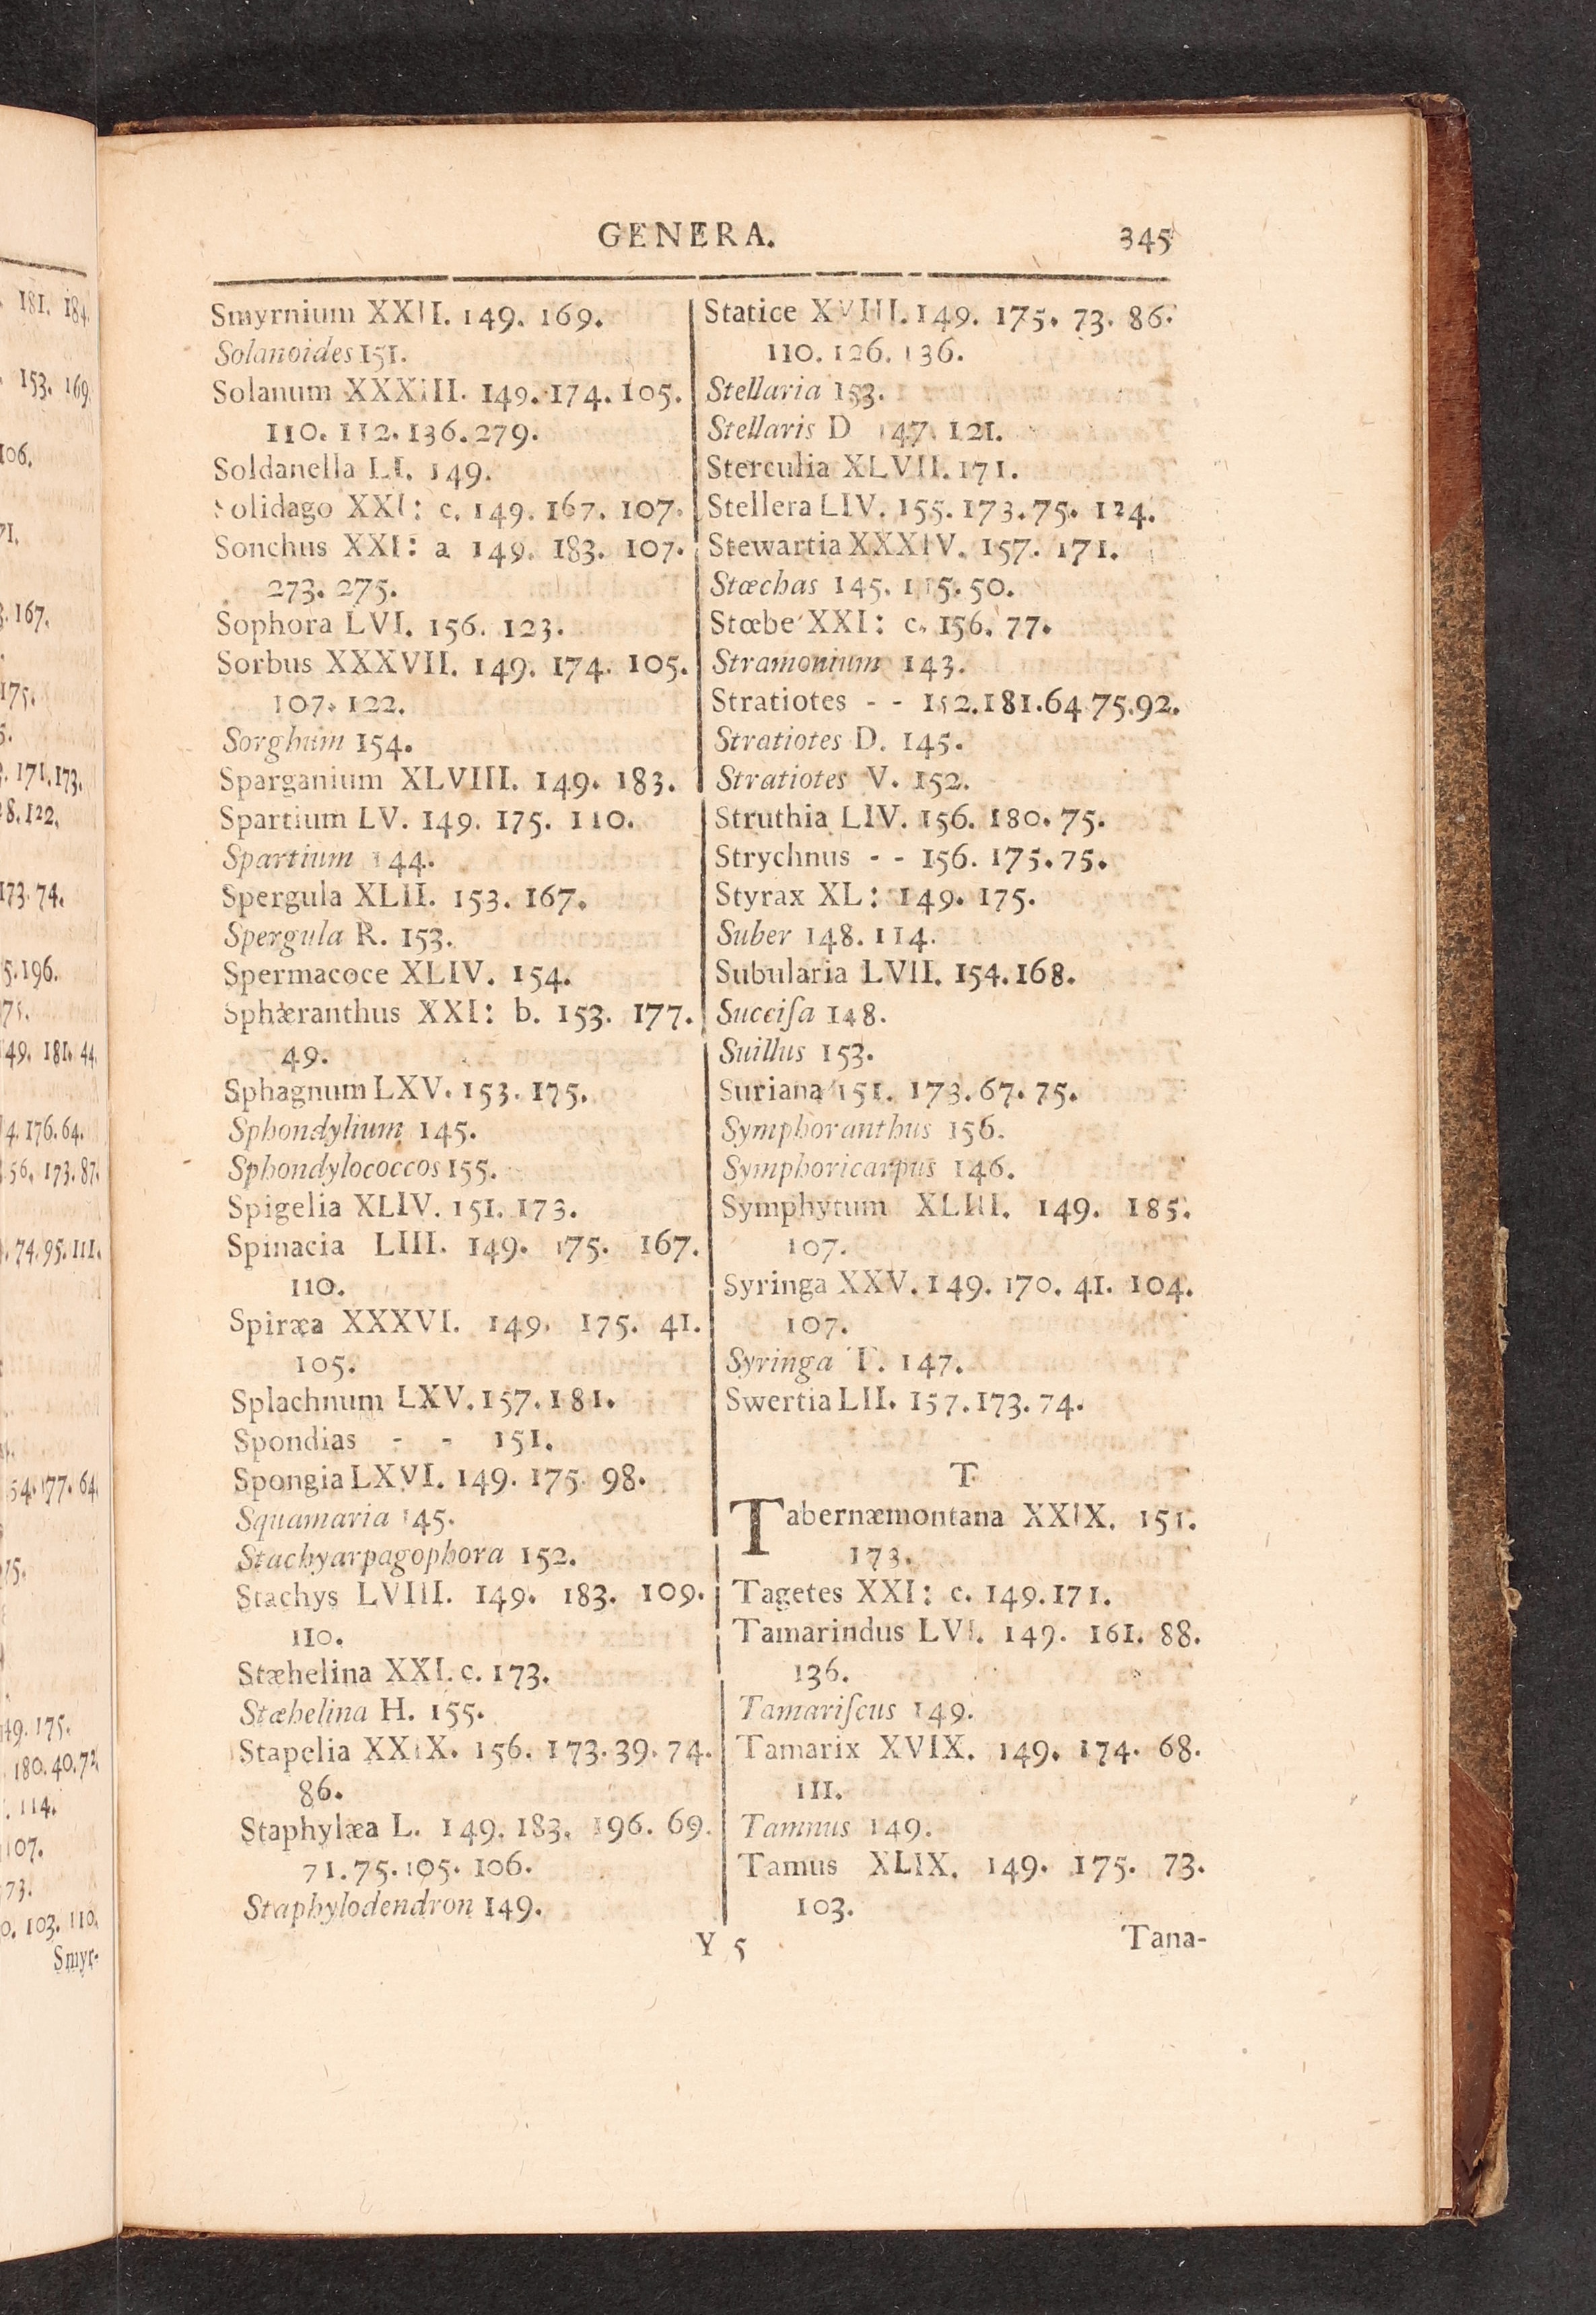 GENERA. 345
Smyrnium XXII. 149. 169.
Solanoides 151.
Solanum XXXIII. 149. 174. 105.
110. 112. 136. 279.
Soldanella LI. 149.
Solidago XXI: c. 149. 167. 107.
Sonchus XXI: a 149. 183. 107.
273. 275.
Sophora LVI. 156. 123.
Sorbus XXXVII. 149. 174. 105.
107. 122.
Sorghum 154.
Sparganium XLVIII. 149. 183.
Spartium LV. 149. 175. 110.
Spartium 144.
Spergula XLII. 153. 167.
Spergula R. 153.
Spermacoce XLIV. 154.
Sphæranthus XXI: b. 153. 177.
49.
Sphagnum LXV. 153. 175.
Sphondylium 145.
Sphondylococcos 155.
Spigelia XLIV. 151. 173.
Spinacia LIII. 149. 175. 167.
110.
Spiræa XXXVI. 149. 175. 41.
105.
Splachnum LXV. 157. 181.
Spondias - - 151.
Spongia LXVI. 149. 175. 98.
Squamaria 145.
Stachyarpagophora 152.
Stachys LVIII. 149. 183. 109.
110.
Stæhelina XXI. c. 173.
Stæhelina H. 155.
Stapelia XXIX. 156. 173. 39. 74.
86.
Staphylæa L. 149. 183. 196. 69.
71. 75. 105. 106.
Staphylodendron 149.
Statice XVIII. 149. 175. 73. 86.
110. 126. 136.
Stellaria 153.
Stellaris D 147. 121.
Sterculia XLVII. 171.
Stellera LIV. 155. 173. 75. 124.
Stewartia XXXIV. 157. 171.
Stœchas 145. 115. 50.
Stœbe XXI: c. 156. 77.
Stramonium 143.
Stratiotes - - 152. 181. 64 75. 92.
Stratiotes D. 145.
Stratiotes V. 152.
Struthia LIV. 156. 180. 75.
Strychnus - - 156. 175. 75.
Styrax XL: 149. 175.
Suber 148. 114.
Subularia LVII. 154. 168.
Succiſa 148.
Suillus 153.
Suriana 151. 173. 67. 75.
Symphoranthus 156.
Symphoricarpus 146.
Symphytum XLIII. 149. 185.
107.
Syringa XXV. 149. 170. 41. 104.
107.
Syringa T. 147.
Swertia LII. 157. 173. 74.
T
Tabernæmontana XXIX. 151.
173.
Tagetes XXI: c. 149. 171.
Tamarindus LVI. 149. 161. 88.
136.
Tamariſcus 149.
Tamarix XVIX. 149. 174. 68.
111.
Tamnus 149.
Tamus XLIX. 149. 175. 73.
103.
Y 5 Tana-